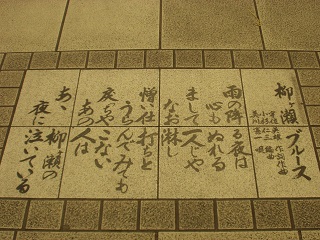 柳ヶ瀬ブルース
宇佐英雄 作詞作曲
小杉仁三 編曲
美川憲一 唄
雨の降る夜は
心も ぬれる
まして一人じゃ
なお淋し
憎い仕打ちと
うらんでみても
戻っちゃこない
あの人は
あゝ 柳瀬の
夜に泣いている